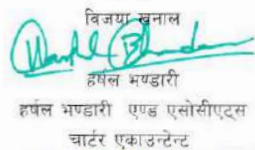 विजया खनाल
हर्षल भण्डारी
हर्षल भण्डारी एण्ड एसोसीएट्स
चार्टर एकाउन्टेन्ट